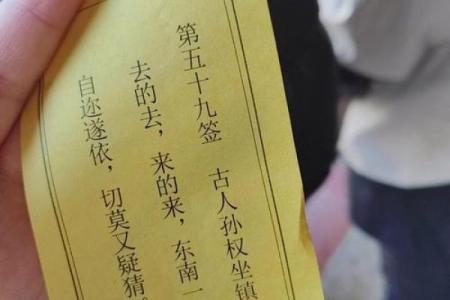 第五十九签 古人孙权坐镇
去的去，来的来，东南一
自迩遂依，切莫又疑猜。